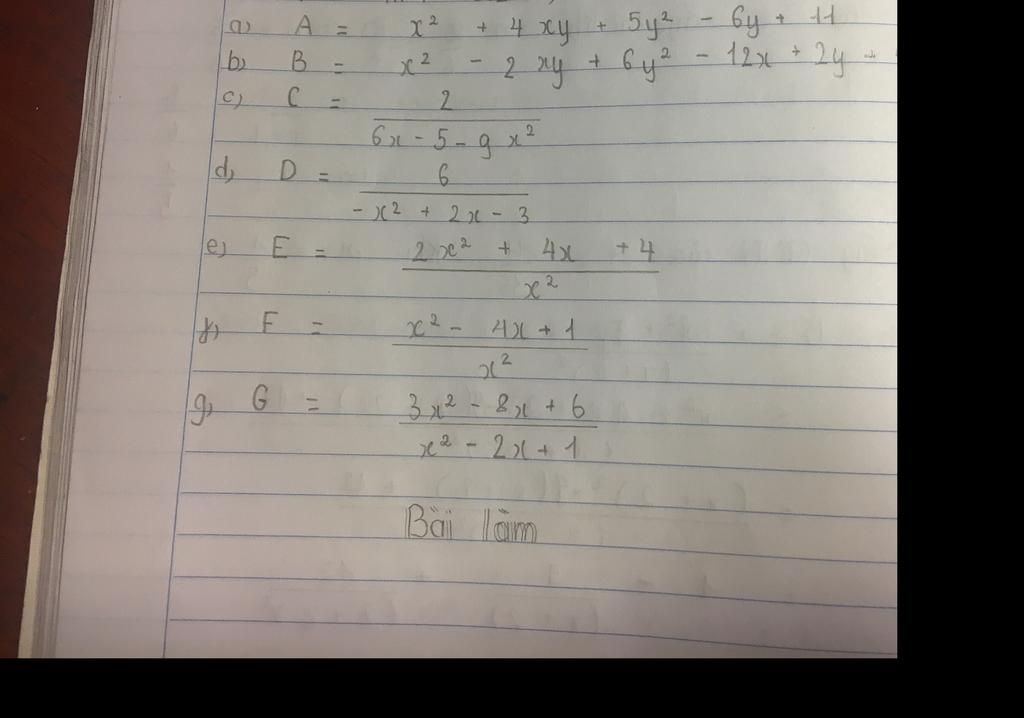 a) A = x² + 4xy + 5y² - 6y + 11
b) B = x² - 2xy + 6y² - 12x + 2y +
c) C = 2 / (6x - 5 - 9x²)
d) D = 6 / (-x² + 2x - 3)
e) E = (2x² + 4x + 4) / x²
f) F = (x² - 4x + 1) / x²
g) G = (3x² - 8x + 6) / (x² - 2x + 1)
Bài làm